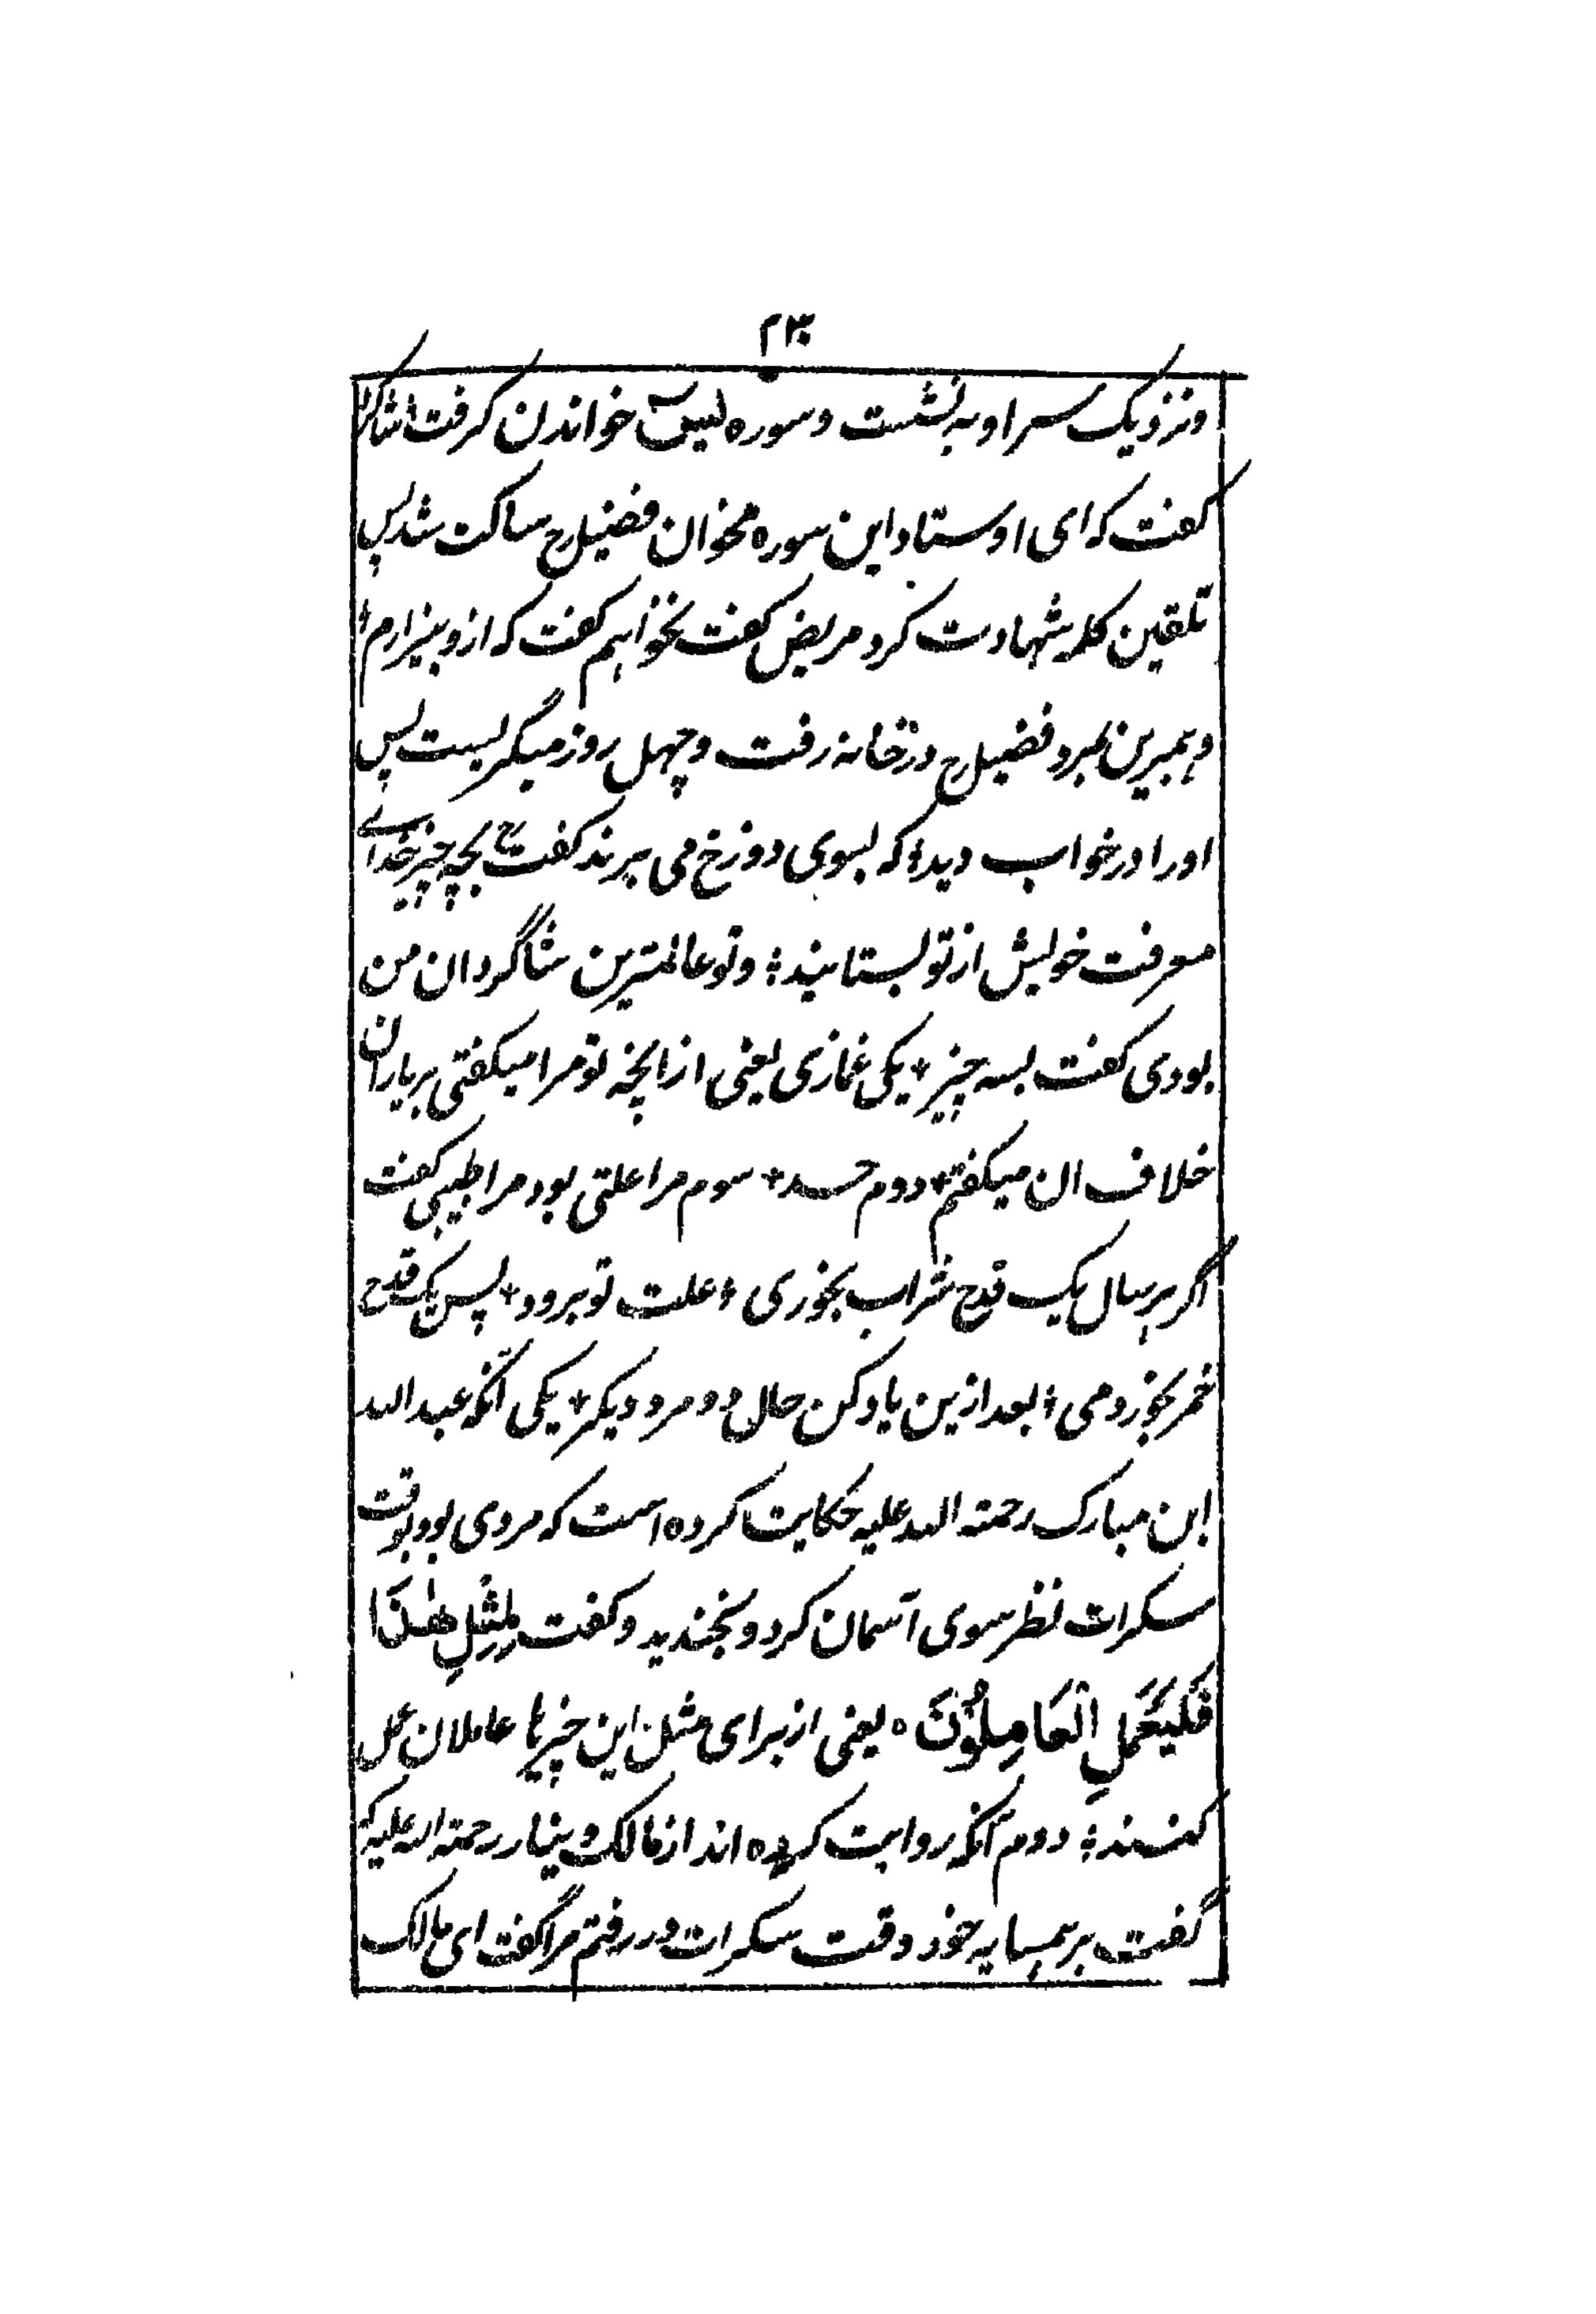 ۲۳۰
ونزدیک سر او به نشست و سوره یٰسٓ خواندن گرفت شاگرد
گفت که ای اوستاد این سوره مخوان فضیل رح ساکت شد پس
تلقین کلمه شهادت کرد مریض گفت نخواهم گفت که ازو بیزارم
و همبرین بمرد فضیل رح در خانه رفت و چهل روز میگریست پس
اورا در خواب دید؛ که بسوی دوزخ می برند گفت رح بچه چیز خدای
معرفت خویش از تو بستانید؛ و تو عالمترین شاگردان من
بودی گفت بسه چیز * یکی غمازی یعنی از انچه تو مرا میگفتی بر یاران
خلاف ان میگفتم * دوم حسد * سوم مرا علتی بود مرا طبیبی گفت
اگر هر سال یک قدح شراب بخوری ؛ علت تو برود * پس یک قدح
خمر بخوردمی ؛ بعد ازین یاد کن حال دو مرد دیگر * یکی آنکه عبد الله
ابن مبارک رحمته الله علیه حکایت کرده است که مردی بود بوقت
سکرات نظر سوی آسمان کرد و بخندید و گفت لِمِثْلِ هٰذَا
فَلْيَعْمَلِ الْعَامِلُوْنَ ہ یعنی از برای مثل این چیزها عاملان عمل
کنند ؛ دوم آنکه روایت کرده اند از مالک دینار رحمته الله علیه که
گفت بر همسایه خود وقت سکرات در رفتم مرا گفت ای مالک